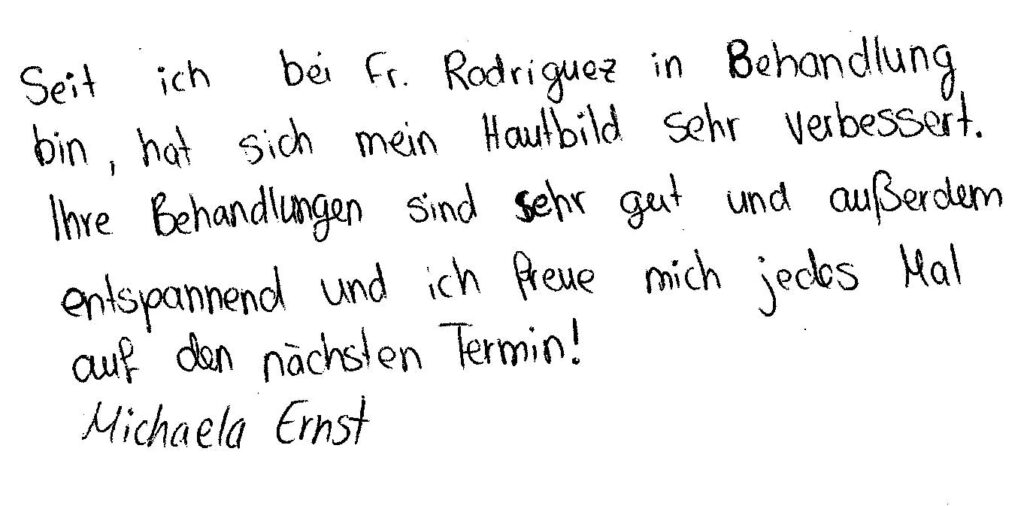 Seit ich bei Fr. Rodriguez in Behandlung
bin, hat sich mein Hautbild sehr verbessert.
Ihre Behandlungen sind sehr gut und außerdem
entspannend und ich freue mich jedes Mal
auf den nächsten Termin!
Michaela Ernst